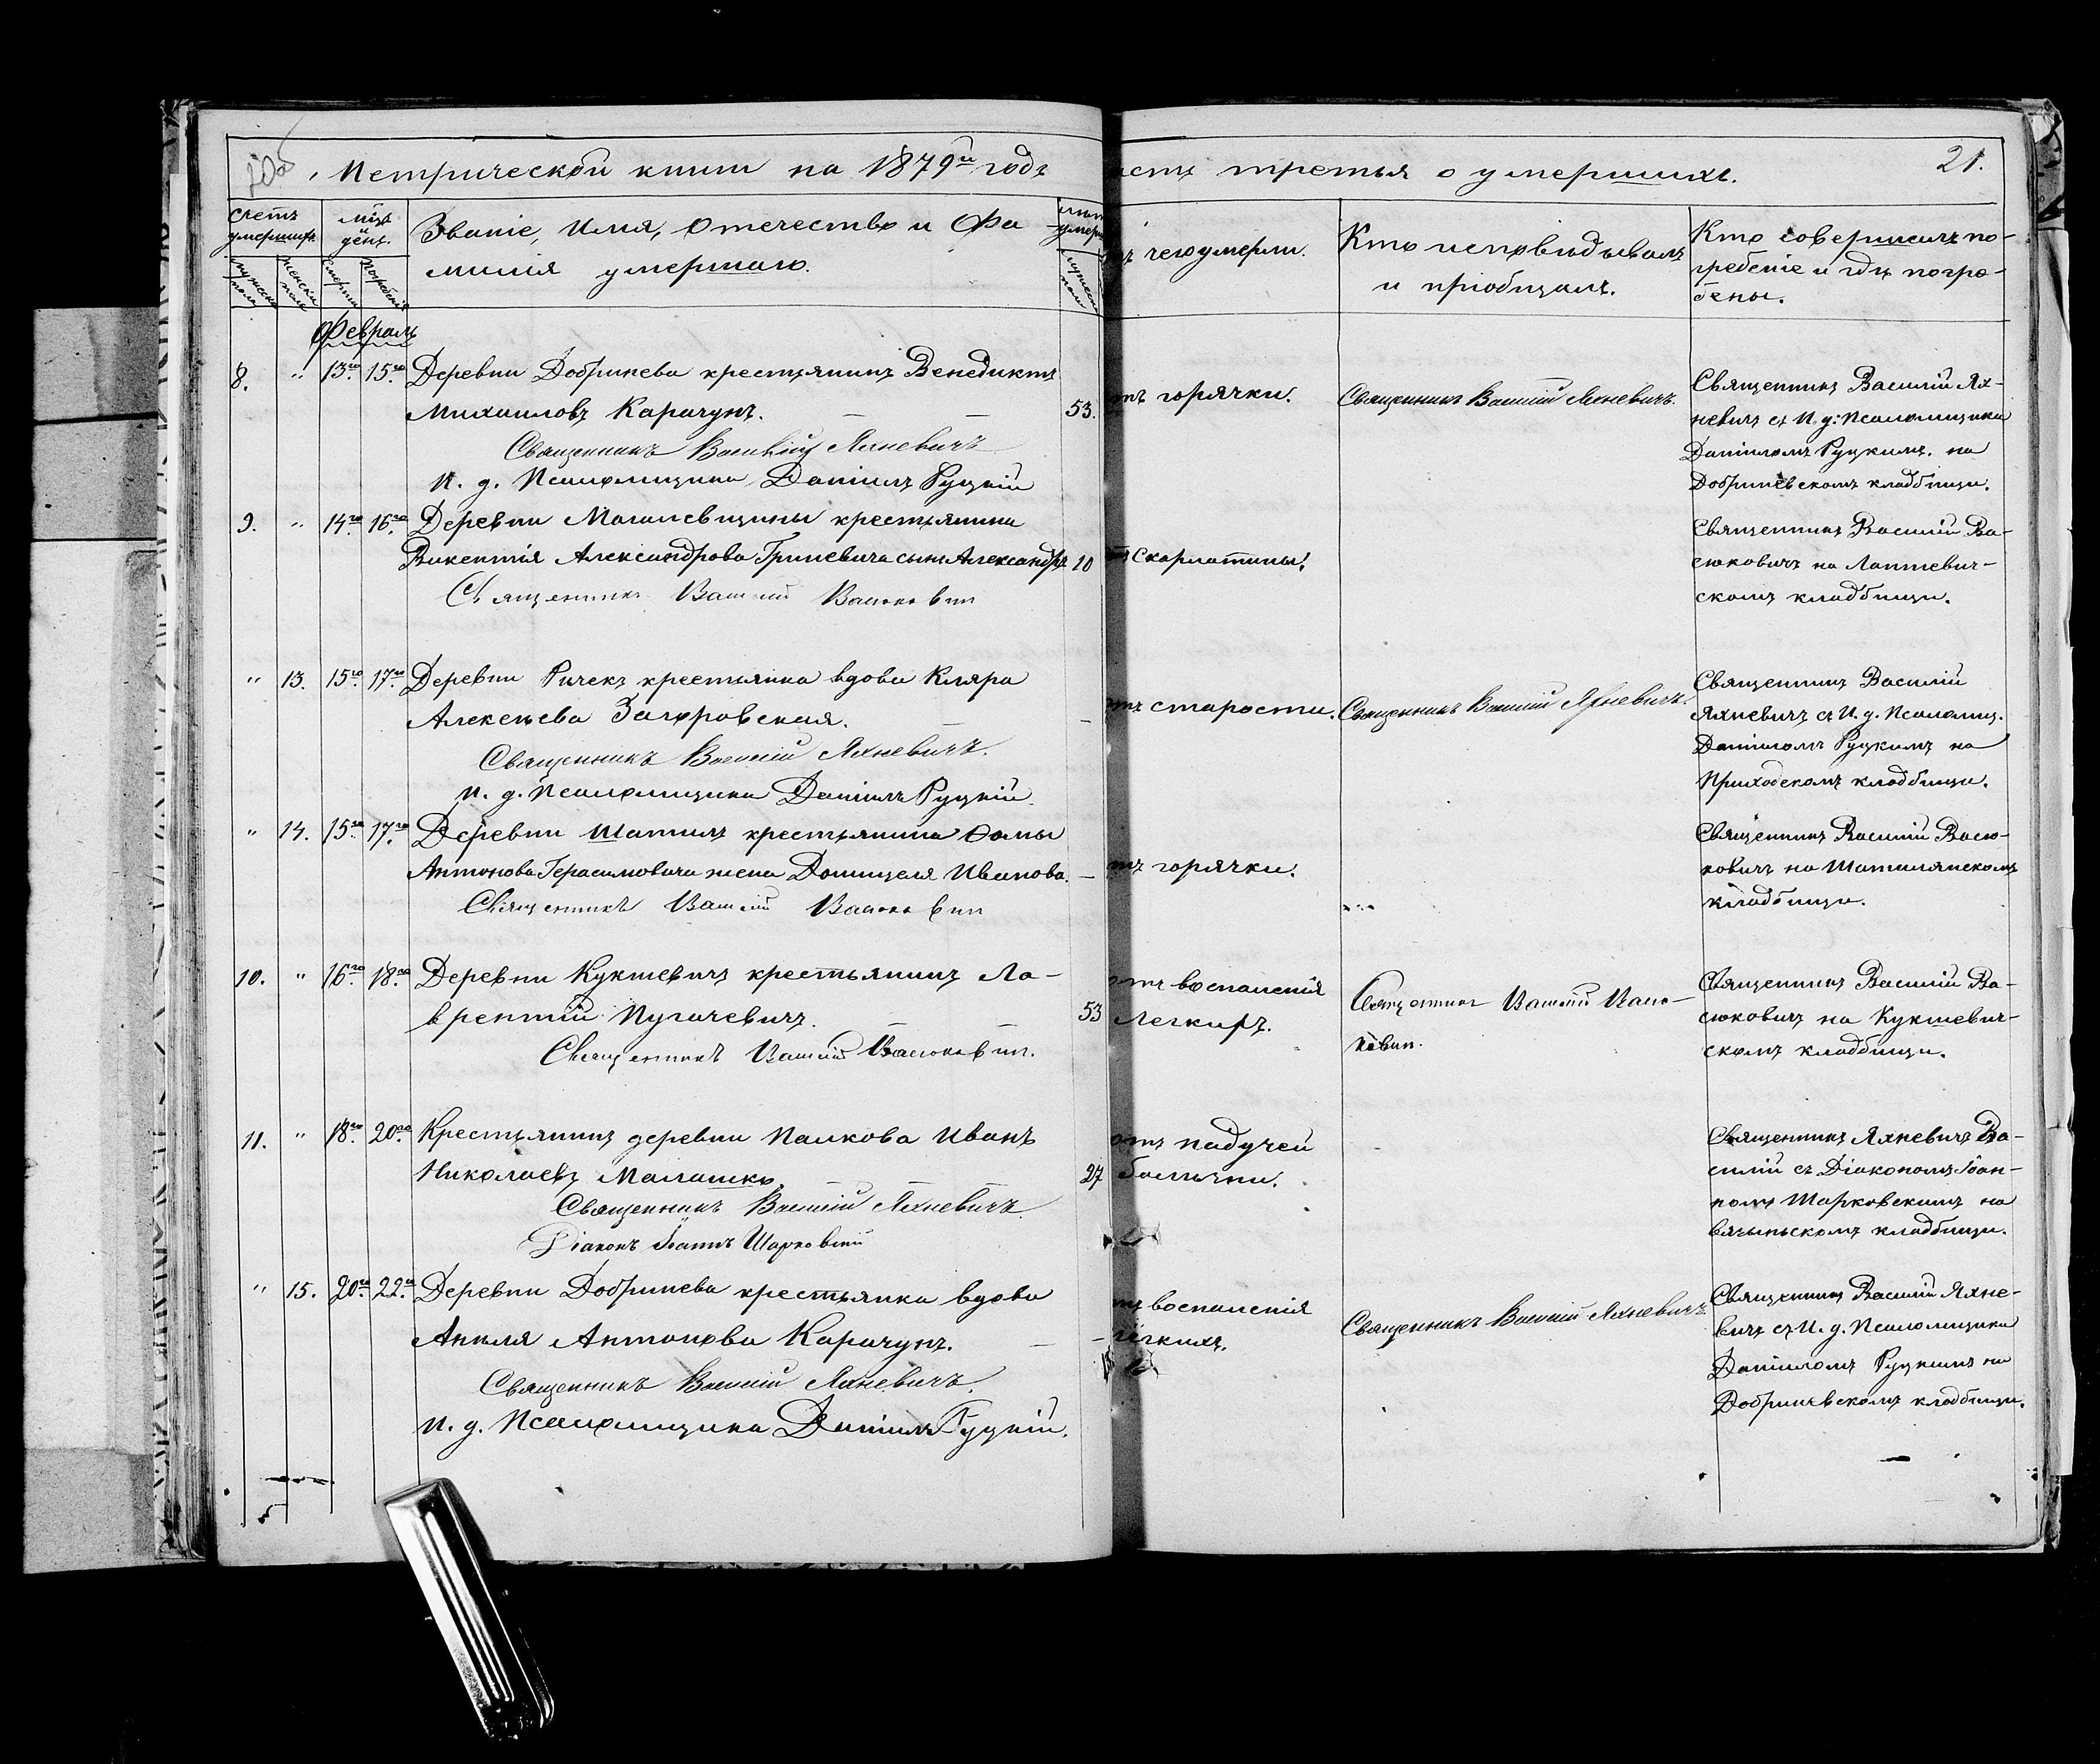 Метрической книги на 1879й годъ
третья о умершихъ.
21.
Счетъ умершихъ.
Мца и день.
Званіе, Имя, Отечество и Фа-
милія умершаго.
чего умерли.
Кто исповѣдывалъ
и пріобщалъ.
Кто совершилъ по-
гребеніе и гдѣ погре-
бены.
мужеска пола
женска пола
смерти
погребенія
Февраль
8. " 13го 15го Деревни Добринева крестьянинъ Венедиктъ
Михаиловъ Карачунъ. — — 53.
Священникъ Василій Яхневичъ
И. д. Псаломщика Даніилъ Руцкій
горячки.
Священникъ Василій Яхневичъ.
Священникъ Василій Ях-
невичъ съ И. д. Псаломщика
Даніиломъ Руцкимъ. на
Добриневскомъ кладбищи.
9. " 14го 16го Деревни крестьянина
Викентія Александрова Гриневича сынъ Александръ 10
Священникъ Василій Васюкович
Скарлатины.
Священникъ Василій Ва-
сюковичъ на Лаптевич-
скомъ кладбищи.
" 13. 15го 17го Деревни Ричекъ крестьянка вдова Кляра
Алексѣева Загоровская. — —
Священникъ Василій Яхневичъ.
И. д. Псаломщика Даніилъ Руцкій.
старости.
Священникъ Василій Яхневичъ.
Священникъ Василій
Яхневичъ съ И. д. Псаломщ.
Даніиломъ Руцкимъ на
Приходскомъ кладбищи.
" 14. 15го 17го Деревни Шатилъ крестьянина Ѳомы
Антонова Герасимовича жена Доминцеля Иванова. —
Священникъ Василій Васюкович
горячки.
Священникъ Василій Васю-
ковичъ на Шатилянскомъ
кладбищи.
10. " 16го 18го Деревни Куктевичъ крестьянинъ Ла-
врентій Пугачевичъ. — — 53
Священникъ Василій Васюкович.
отъ воспаленія
Легкихъ.
Священникъ Василій Васю-
кович.
Священникъ Василій Ва-
сюковичъ на Куктевич-
скомъ кладбищи.
11. " 18го 20го Крестьянинъ деревни Палкова Иванъ
Николаевъ Малашко. — — 27
Священникъ Василій Яхневичъ.
Діаконъ Іоаннъ Шарковскій
отъ падучей
болѣзни.
Священникъ Яхневичъ Ва-
силій съ Діакономъ Іоан-
номъ Шарковскимъ на
Вязыньскомъ кладбищи.
" 15. 20го 22го Деревни Добринева крестьянка вдова
Анеля Антонова Карачунъ. — —
Священникъ Василій Яхневичъ.
И. д. Псаломщика Даніилъ Руцкій.
воспаленія
легкихъ.
Священникъ Василій Яхневичъ.
Священникъ Василій Яхне-
вичъ съ И. д. Псаломщика
Даніиломъ Руцкимъ на
Добриневскомъ кладбищи.